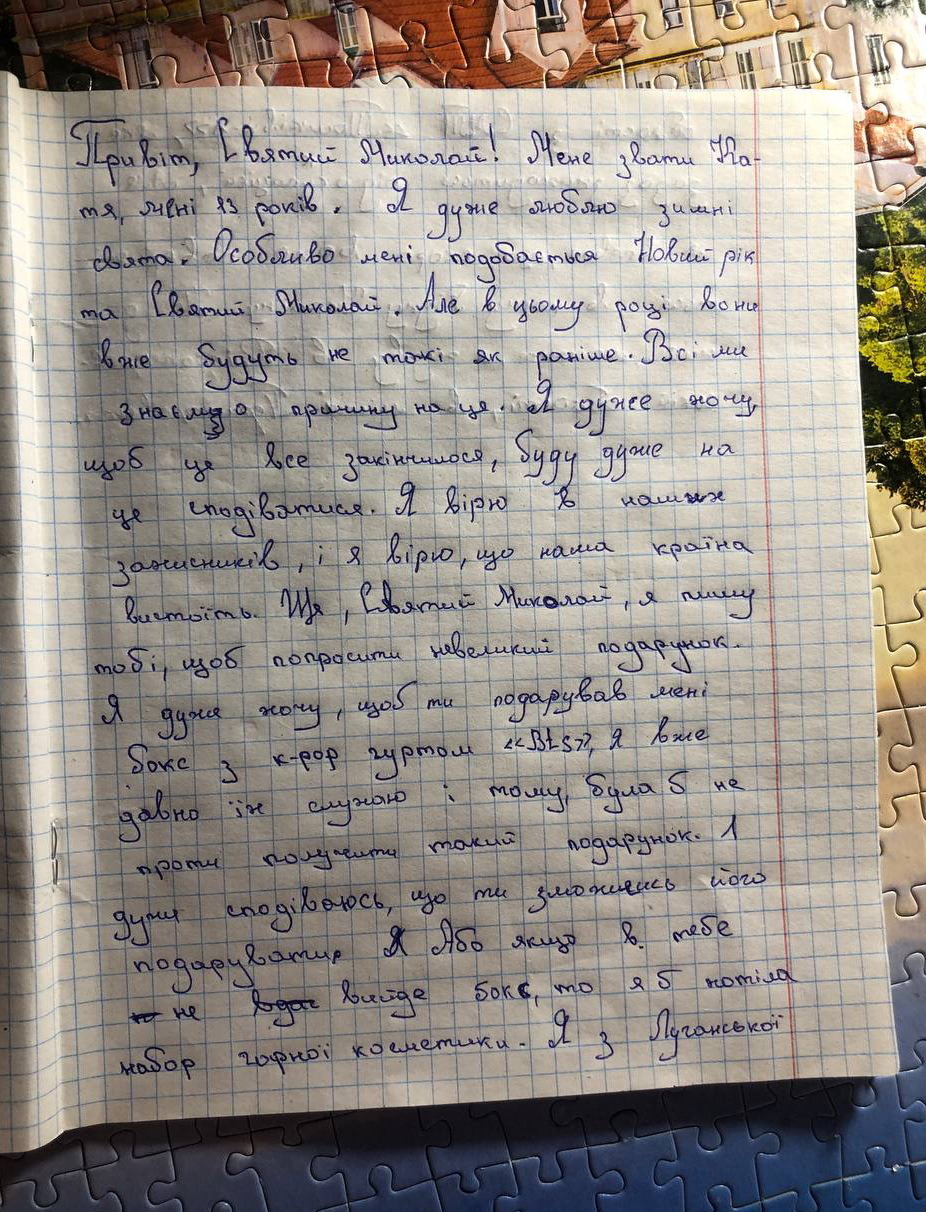 Привіт, Святий Миколай! Мене звати Ка-
тя, мені 13 років. Я дуже люблю зимні
свята. Особливо мені подобається Новий рік
та Святий Миколай. Але в цьому році вони
вже будуть не такі як раніше. Всі ми
знаємо причину на це. Я дуже хочу,
щоб це все закінчилося, буду дуже на
це сподіватися. Я вірю в наших
захисників, і я вірю, що наша країна
вистоїть. Ще, Святий Миколай, я пишу
тобі, щоб попросити невеликий подарунок.
Я дуже хочу, щоб ти подарував мені
бокс з к-pop гуртом «Bts», я вже
давно їх слухаю і тому, була б не
проти получити такий подарунок. І
дуже сподіваюсь, що ти зможешь його
подарувати. Або якщо в тебе
не вийде бокс, то я б хотіла
набор гарної косметики. Я з Луганської